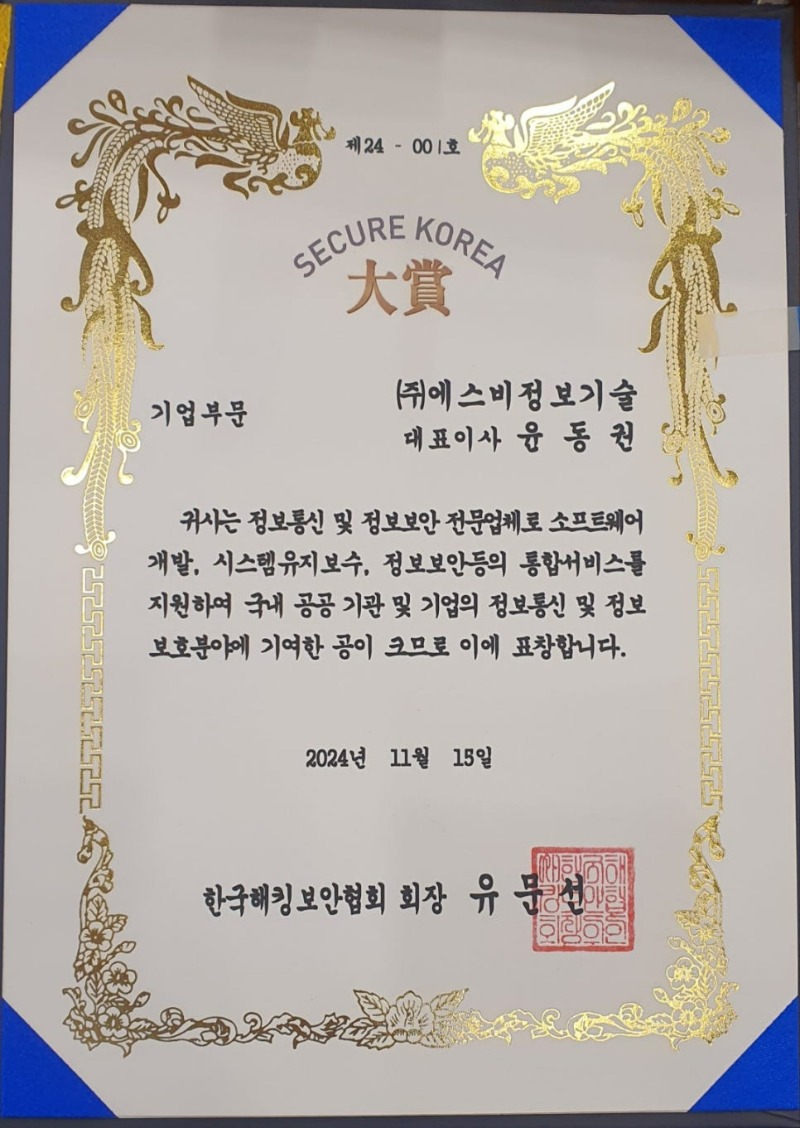 제24 - 001호
SECURE KOREA
大賞
기업부문
㈜에스비정보기술
대표이사 윤 동 권
귀사는 정보통신 및 정보보안 전문업체로 소프트웨어
개발, 시스템유지보수, 정보보안등의 통합서비스를
지원하여 국내 공공 기관 및 기업의 정보통신 및 정보
보호분야에 기여한 공이 크므로 이에 표창합니다.
2024년 11월 15일
한국해킹보안협회 회장 유 문 선